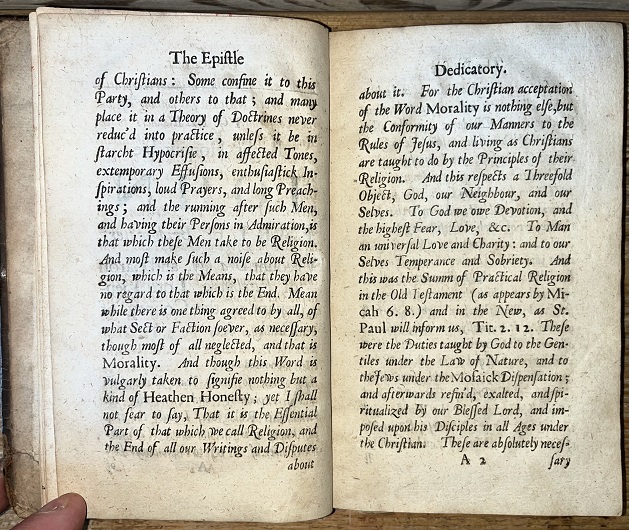 The Epistle
of Chriſtians: Some confine it to this
Party, and others to that; and many
place it in a Theory of Doctrines never
reduc'd into practice, unleſs it be in
ſtarcht Hypocriſie, in affected Tones,
extemporary Effuſions, enthuſiaſtick In-
ſpirations, loud Prayers, and long Preach-
ings; and the running after ſuch Men,
and having their Perſons in Admiration, is
that which theſe Men take to be Religion.
And moſt make ſuch a noiſe about Reli-
gion, which is the Means, that they have
no regard to that which is the End. Mean
while there is one thing agreed to by all, of
what Sect or Faction ſoever, as neceſſary,
though moſt of all neglected, and that is
Morality. And though this Word is
vulgarly taken to ſignifie nothing but a
kind of Heathen Honeſty; yet I ſhall
not fear to ſay, That it is the Eſſential
Part of that which we call Religion, and
the End of all our Writings and Diſputes
about
Dedicatory.
about it. For the Chriſtian acceptation
of the Word Morality is nothing elſe, but
the Conformity of our Manners to the
Rules of Jeſus, and living as Chriſtians
are taught to do by the Principles of their
Religion. And this reſpects a Threefold
Object, God, our Neighbour, and our
Selves. To God we owe Devotion, and
the higheſt Fear, Love, &c. To Man
an univerſal Love and Charity: and to our
Selves Temperance and Sobriety. And
this was the Summ of Practical Religion
in the Old Teſtament (as appears by Mi-
cah 6. 8.) and in the New, as St.
Paul will inform us, Tit. 2. 12. Theſe
were the Duties taught by God to the Gen-
tiles under the Law of Nature, and to
the Jews under the Moſaick Diſpenſation;
and afterwards refin'd, exalted, and ſpi-
ritualized by our Bleſſed Lord, and im-
poſed upon his Diſciples in all Ages under
the Chriſtian. Theſe are abſolutely neceſ-
A 2 ſary